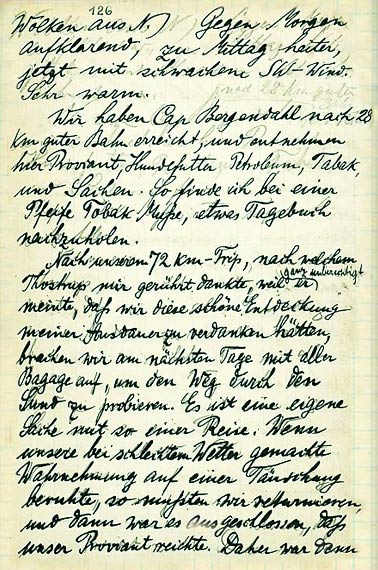 126
Wolken aus N.) Gegen Morgen
aufklarend, zu Mittag heiter,
jetzt mit schwachem SW-Wind.
Sehr warm.
Wir haben Cap Bergendahl nach 28
km guter Bahn erreicht, und entnehmen
hier Proviant, Hundefutter Petroleum, Tabak,
und Sachen. So finde ich bei einer
Pfeife Tobak Muße, etwas Tagebuch
nachzuholen.
Nach unserem 72 km-Trip, nach welchem
Thostrup mir gerührt dankte, weil er ganz unberechtigt
meinte, daß wir diese schöne Entdeckung
meiner Ausdauer zu verdanken hätten,
brachen wir am nächsten Tage mit aller
Bagage auf, um den Weg durch den
Sund zu probieren. Es ist eine eigene
Sache mit so einer Reise. Wenn
unsere bei schlechtem Wetter gemachte
Wahrnehmung auf einer Täuschung
beruhte, so mußten wir returnieren,
und dann war es ausgeschlossen, daß
unser Proviant reichte. Daher war dann